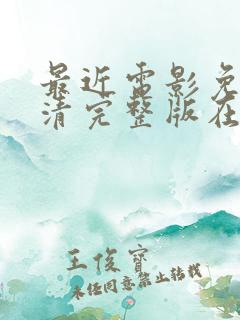 最近电影免
清完整版在
王俊宝
未经同意禁止转载